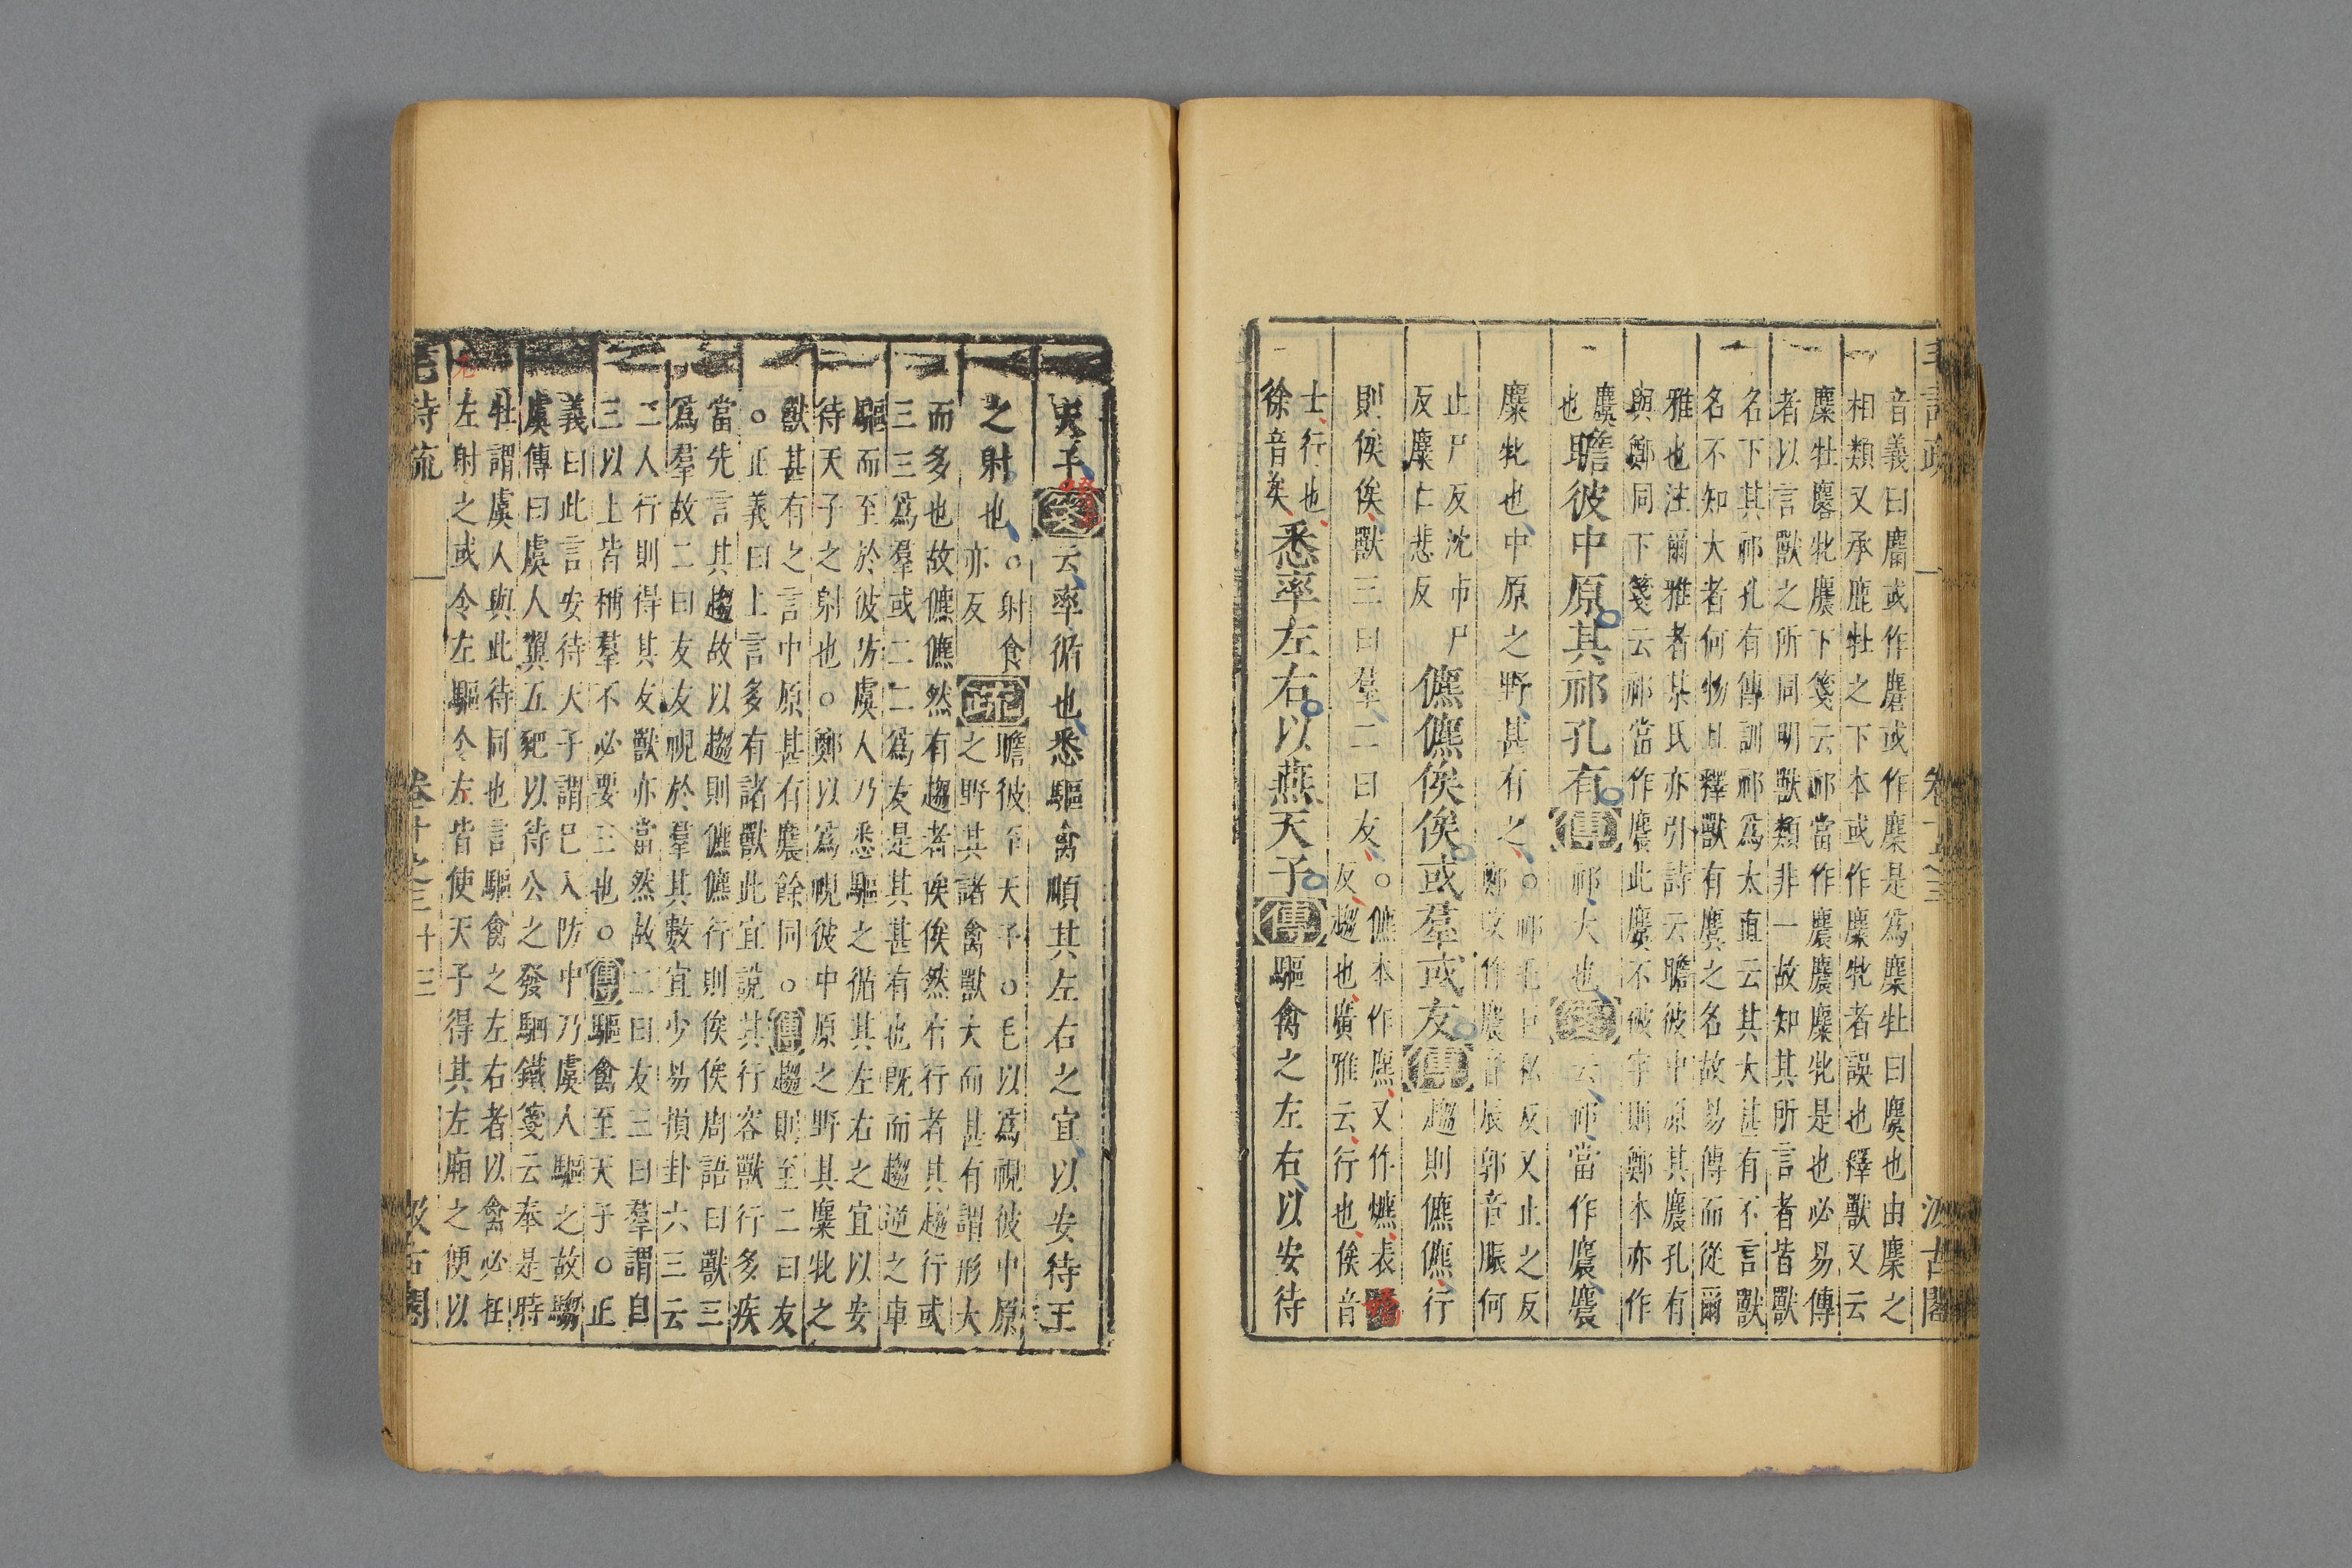 音義曰麕或作麏或作麇是爲麋牡曰麌也由麋之
相類又承鹿牡之下本或作麋牝者誤也釋獸又云
麋牡麔牝麎下箋云祁當作麎麎麋牝是也必易傳
者以言獸之所同明獸類非一故知其所言者皆獸
名下其祁孔有傳訓祁爲大直云其大甚有不言獸
名不知大者何物且釋獸有麎之名故易傳而從爾
雅也注爾雅者某氏亦引詩云瞻彼中原其麎孔有
與鄭同下箋云祁當作麎此麎不破字則鄭本亦作
麌也
瞻彼中原其祁孔有傳祁大也箋云祁當作麎麎
麋牝也中原之野甚有之○祁毛巨私反又止之反
鄭改作麎音辰郭音脤何
止尸反沈市尸
反麋亡悲反
儦儦俟俟或羣或友傳趨則儦儦行
則俟俟獸三曰羣二曰友○儦本作麃又作爊表驕
反趨也廣雅云行也俟音
士行也
徐音矣
悉率左右以燕天子傳驅禽之左右以安待
天子箋云率循也悉驅禽順其左右之宜以安待王
之射也○射食
亦反
疏瞻彼至天子○毛以爲視彼中原
之野其諸禽獸大而甚有謂形大
而多也故儦儦然有趨者俟俟然有行者其趨行或
三三爲羣或二二爲友是其甚有也既而趨逆之車
驅而至於彼防虞人乃悉驅之循其左右之宜以安
待天子之射也○鄭以爲視彼中原之野其麋牝之
獸甚有之言中原甚有麎餘同○傳趨則至二曰友
○正義曰上言多有諸獸此宜說其行容獸行多疾
當先言其趨故以趨則儦儦行則俟俟周語曰獸三
爲羣故二曰友友視於羣其數宜少易損卦六三云
二人行則得其友獸亦當然故二曰友三曰羣謂自
三以上皆稱羣不必要三也○傳驅禽至天子○正
義曰此言安待天子謂巳入防中乃虞人驅之故騶
虞傳曰虞人翼五豝以待公之發駟鐵箋云奉是時
牡謂虞人與此待同也言驅禽之左右者以禽必在
左射之或令左驅令左皆使天子得其左廂之便以
毛詩疏 卷十之三 十三 汲古閣